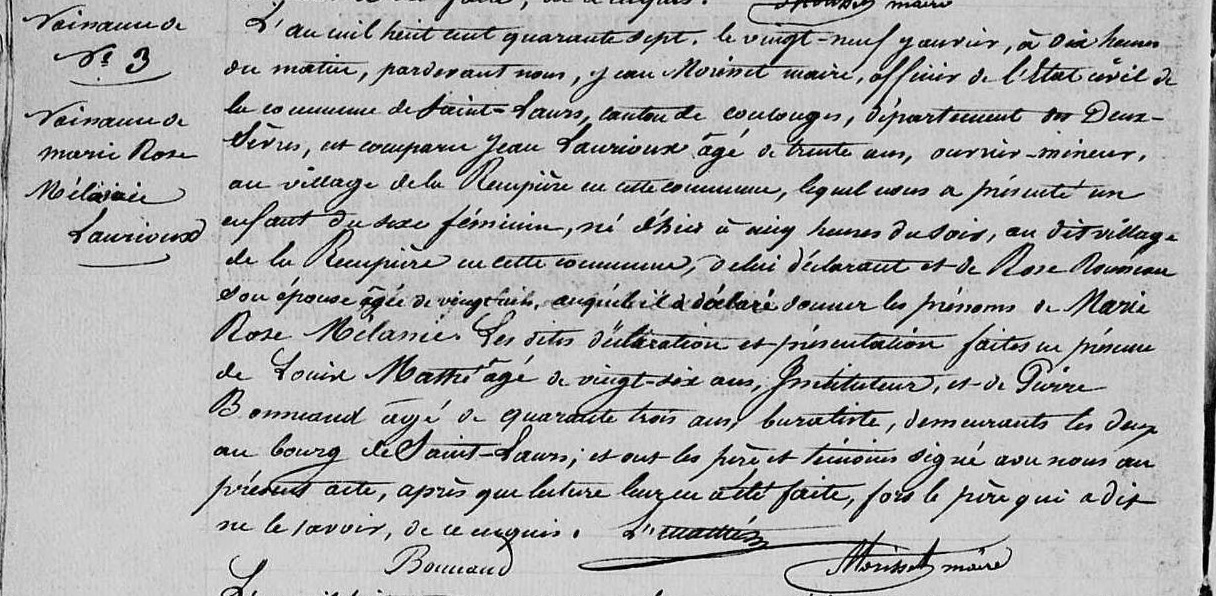 maire
Naissance de
N° 3
Naissance de
marie Rose
Mélanie
Laurioux
L'an mil huit cent quarante sept, le vingt-neuf janvier, à dix heures
du matin, pardevant nous, jean Morisset maire, officier de l'État civil de
la commune de Saint-Laurs, canton de coulonges, département des Deux-
Sèvres, est comparu Jean Laurioux âgé de trente ans, ouvrier-mineur,
au village de la Rempière en cette commune, lequel nous a présenté un
enfant du sexe féminin, né d'hier à cinq heures du soir, au dit village
de la Rempière en cette commune, de lui déclarant et de Rose
son épouse âgée de vingt huit, auquel il a déclaré donner les prénoms de Marie
Rose Mélanie. Les dites déclaration et présentation faites en présence
de Louis Mathé âgé de vingt-six ans, Instituteur, et de Pierre
Bonneaud âgé de quarante trois ans, buraliste, demeurants les deux
au bourg de Saint-Laurs; et ont les père et témoins signé avec nous au
présent acte, après que lecture leur en a été faite, fors le père qui a dit
ne le savoir, de ce enquis. L. Mathé
Bonneaud Morisset maire